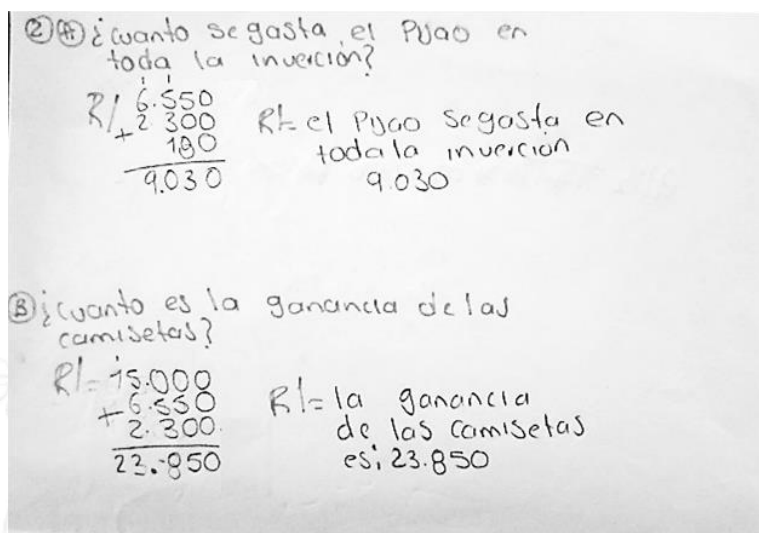 ② Ⓐ ¿cuanto se gasta el Pijao en
toda la inverción?
1 1
R/ 6.550
+ 2.300
180
9.030
R/= el Pijao segasta en
toda la inverción
9.030
Ⓑ ¿cuanto es la ganancia de las
camisetas?
1
R/= 15.000
+ 6.550
2.300.
23.850
R/= la ganancia
de las camisetas
es; 23.850